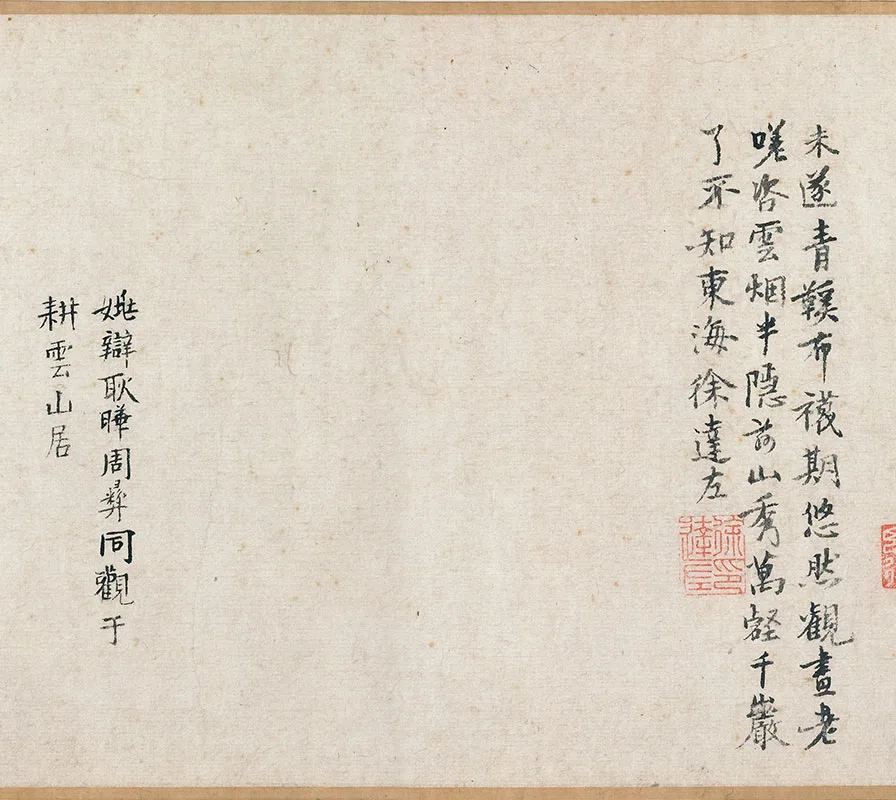 未遂青鞵布襪期悠然觀畫老
嗟咨雲烟半隱前山秀萬壑千巖
了不知東海徐達左
徐印達左
姚辯耿曄周彝同觀于
耕雲山居